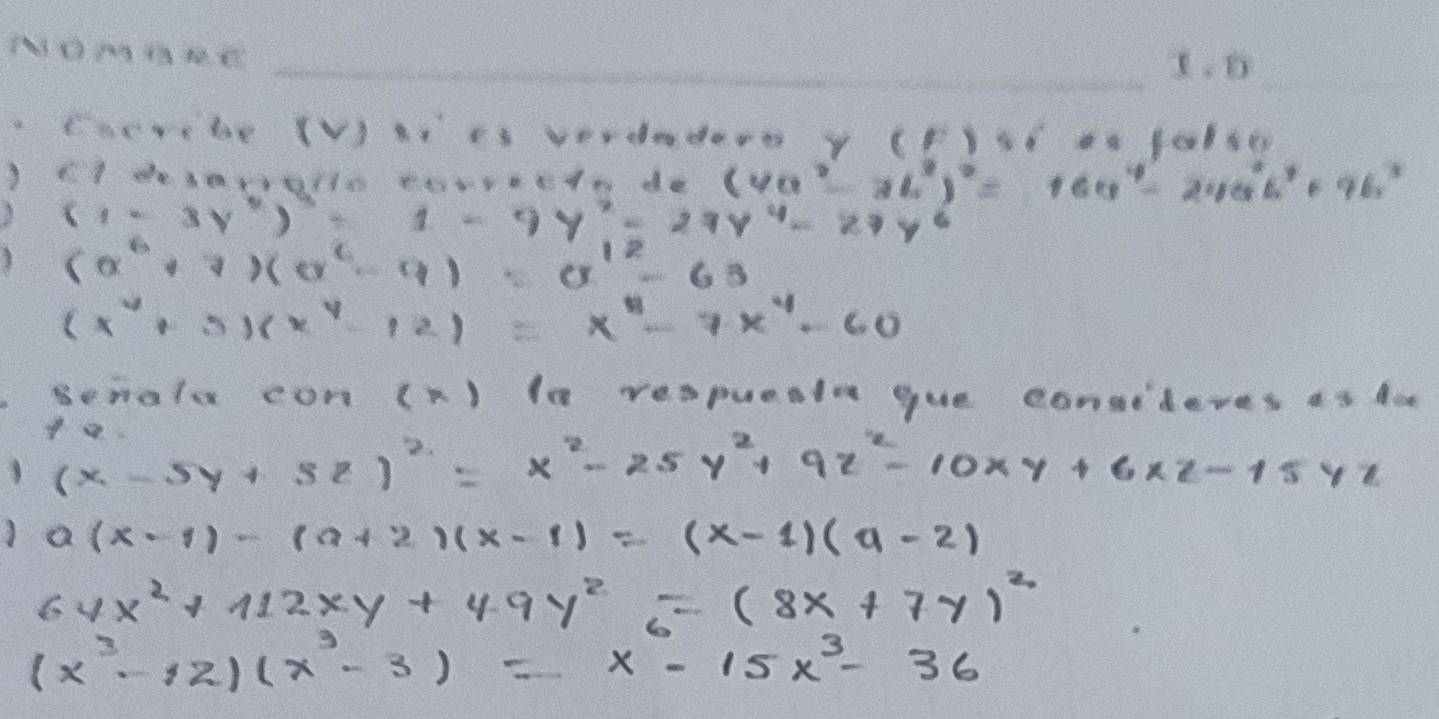 NOMBRE I.D
. Escribe (V) si es verdadero y (F) si es falso
) El desarrollo correcto de (4a² - 3b³)² = 16a⁴ - 24a²b³ + 9b⁶
) (1 - 3y²)³ = 1 - 9y² - 27y⁴ - 27y⁶
) (a⁶ + 7)(a⁶ - 9) = a¹² - 63
(x⁴ + 5)(x⁴ - 12) = x⁸ - 7x⁴ - 60
. señala con (x) la respuesta que consideres es la
ta.
) (x - 5y + 3z)² = x² - 25y² + 9z² - 10xy + 6xz - 15yz
) a(x-1) - (a+2)(x-1) = (x-1)(a-2)
64x² + 112xy + 49y² = (8x + 7y)²
(x³ - 12)(x³ - 3) = x⁶ - 15x³ - 36